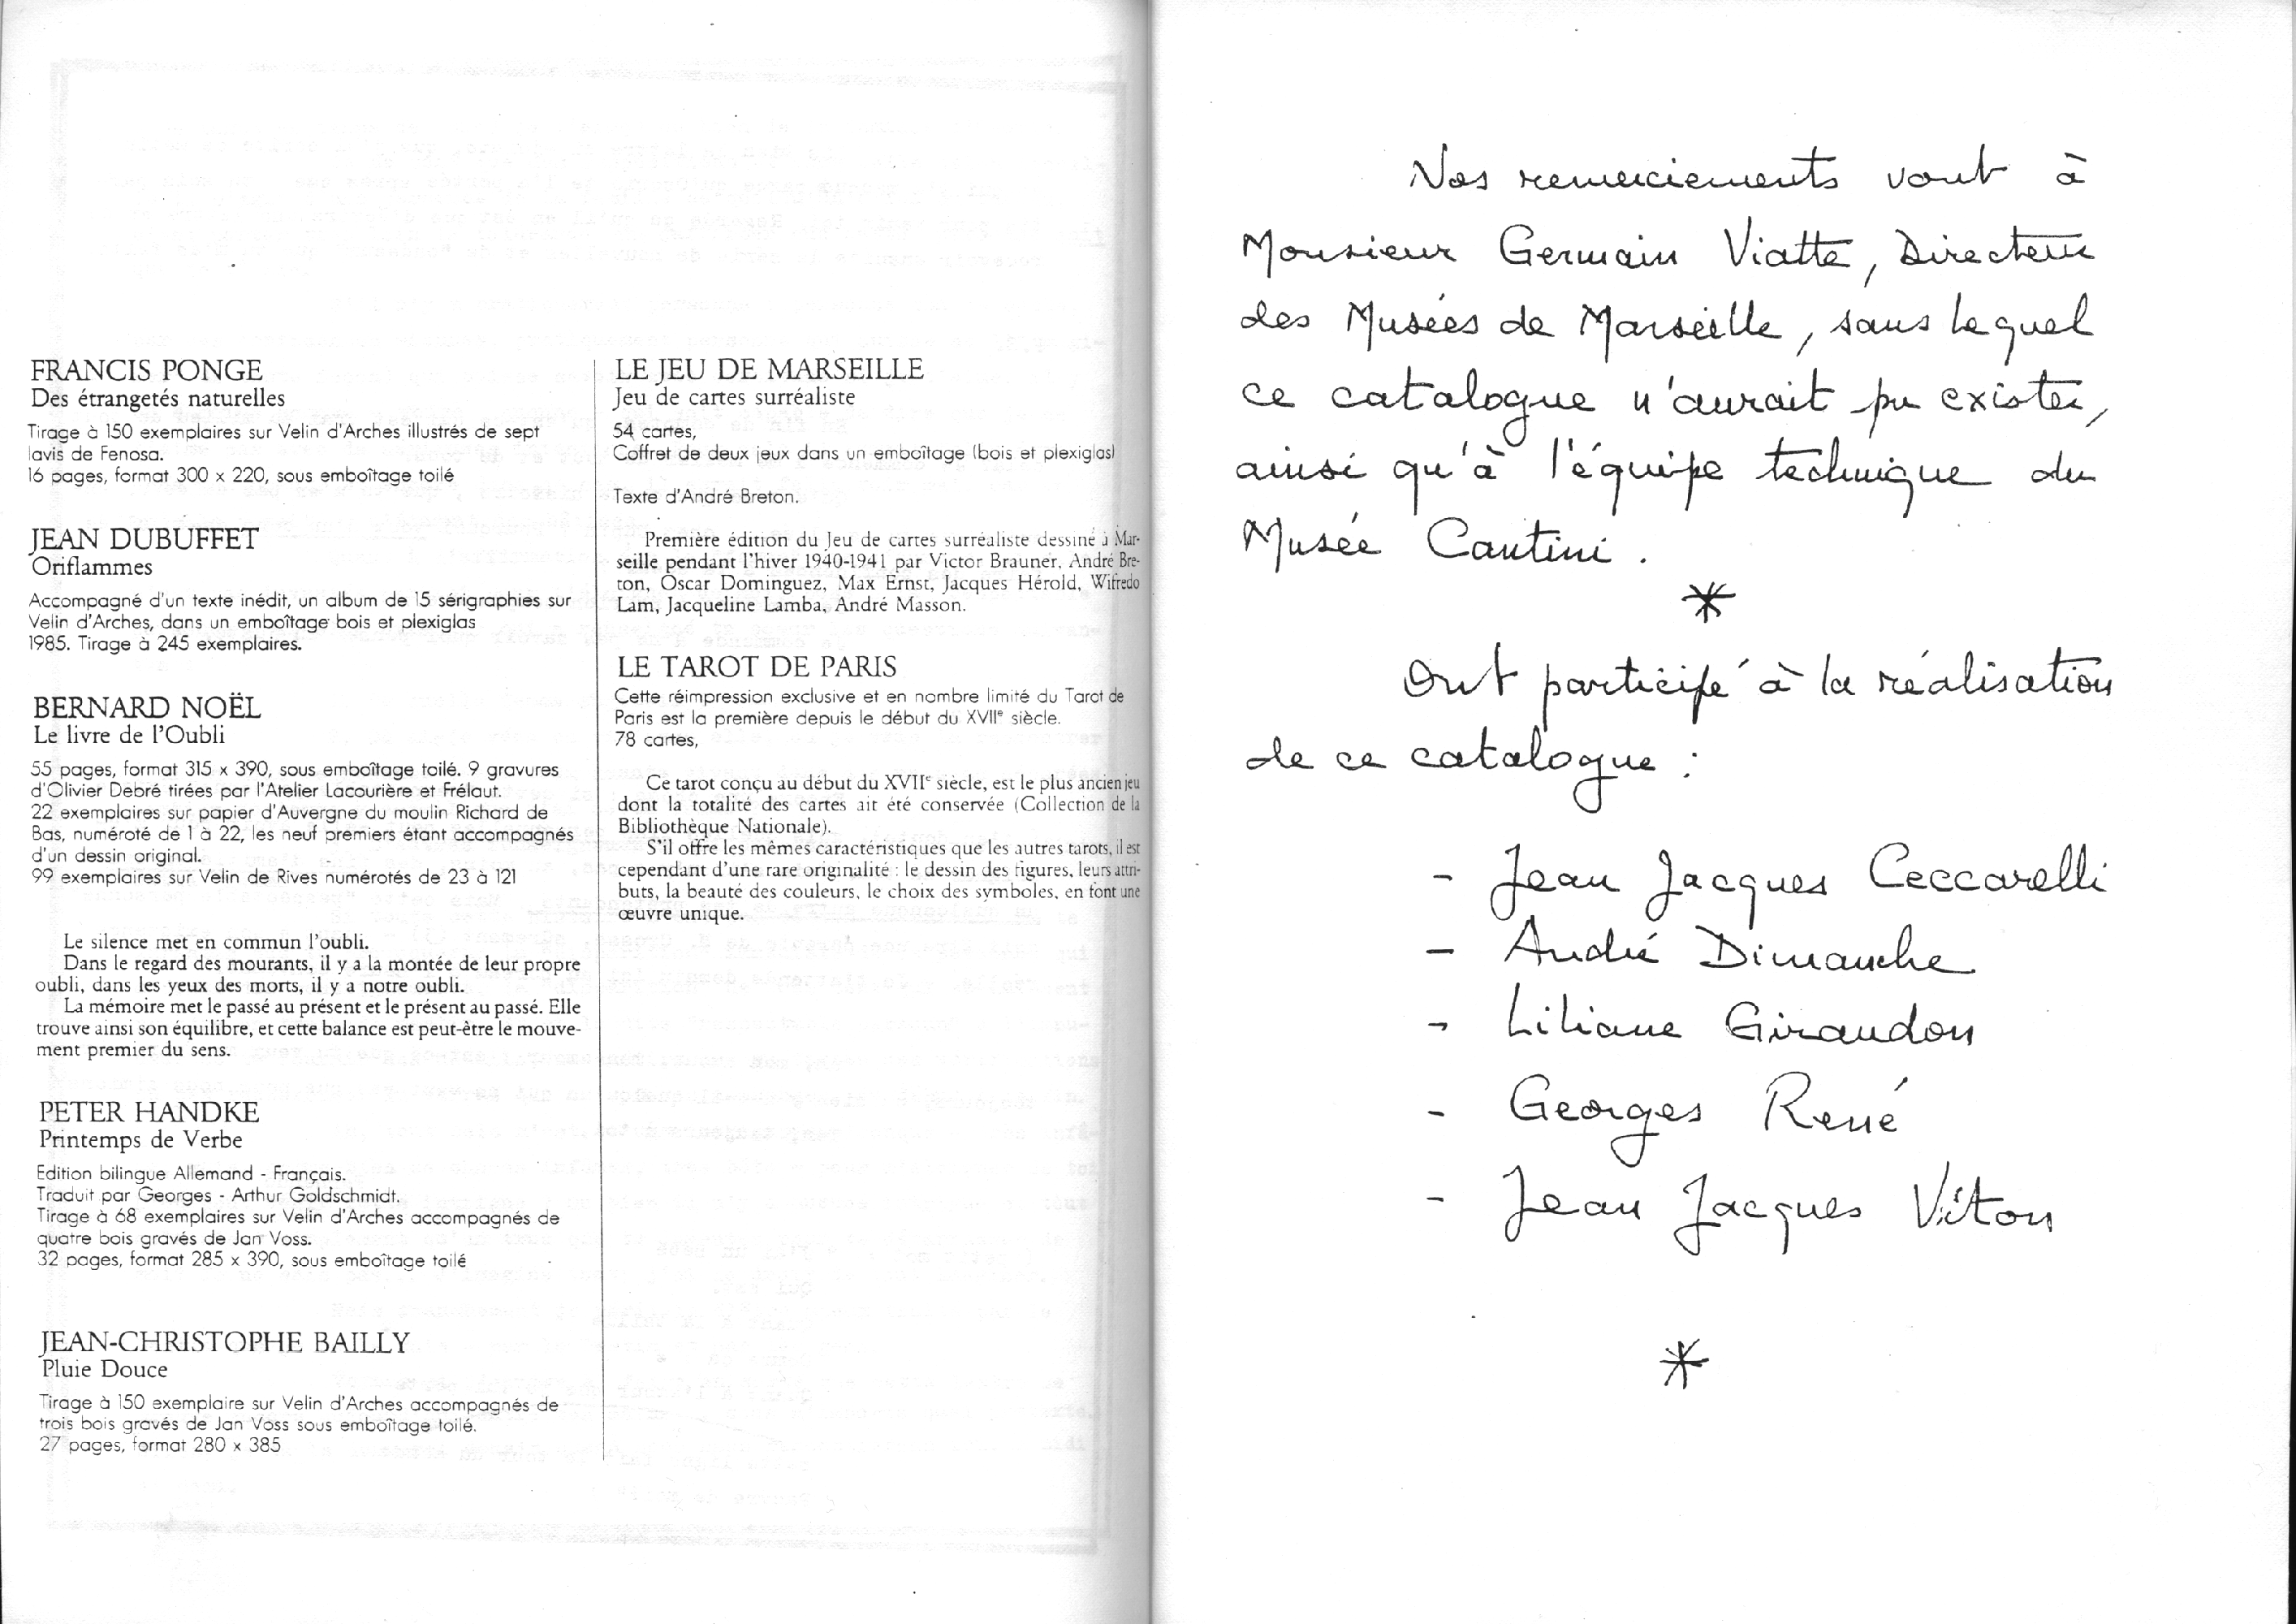 FRANCIS PONGE
Des étrangetés naturelles
Tirage à 150 exemplaires sur Velin d'Arches illustrés de sept
lavis de Fenosa.
16 pages, format 300 x 220, sous emboîtage toilé
JEAN DUBUFFET
Oriflammes
Accompagné d'un texte inédit, un album de 15 sérigraphies sur
Velin d'Arches, dans un emboîtage bois et plexiglas
1985. Tirage à 245 exemplaires.
BERNARD NOËL
Le livre de l'Oubli
55 pages, format 315 x 390, sous emboîtage toilé. 9 gravures
d'Olivier Debré tirées par l'Atelier Lacourière et Frélaut.
22 exemplaires sur papier d'Auvergne du moulin Richard de
Bas, numéroté de 1 à 22, les neuf premiers étant accompagnés
d'un dessin original.
99 exemplaires sur Velin de Rives numérotés de 23 à 121
Le silence met en commun l'oubli.
Dans le regard des mourants, il y a la montée de leur propre
oubli, dans les yeux des morts, il y a notre oubli.
La mémoire met le passé au présent et le présent au passé. Elle
trouve ainsi son équilibre, et cette balance est peut-être le mouve-
ment premier du sens.
PETER HANDKE
Printemps de Verbe
Edition bilingue Allemand - Français.
Traduit par Georges - Arthur Goldschmidt.
Tirage à 68 exemplaires sur Velin d'Arches accompagnés de
quatre bois gravés de Jan Voss.
32 pages, format 285 x 390, sous emboîtage toilé
JEAN-CHRISTOPHE BAILLY
Pluie Douce
Tirage à 150 exemplaire sur Velin d'Arches accompagnés de
trois bois gravés de Jan Voss sous emboîtage toilé.
27 pages, format 280 x 385
LE JEU DE MARSEILLE
Jeu de cartes surréaliste
54 cartes,
Coffret de deux jeux dans un emboîtage (bois et plexiglas)
Texte d'André Breton.
Première édition du Jeu de cartes surréaliste dessiné à Mar-
seille pendant l'hiver 1940-1941 par Victor Brauner, André Bre-
ton, Oscar Dominguez, Max Ernst, Jacques Hérold, Wifredo
Lam, Jacqueline Lamba, André Masson.
LE TAROT DE PARIS
Cette réimpression exclusive et en nombre limité du Tarot de
Paris est la première depuis le début du XVIIe siècle.
78 cartes,
Ce tarot conçu au début du XVIIe siècle, est le plus ancien jeu
dont la totalité des cartes ait été conservée (Collection de la
Bibliothèque Nationale).
S'il offre les mêmes caractéristiques que les autres tarots, il est
cependant d'une rare originalité : le dessin des figures, leurs attri-
buts, la beauté des couleurs, le choix des symboles, en font une
œuvre unique.
Nos remerciements vont à
Monsieur Germain Viatte, Directeur
des Musées de Marseille, sans lequel
ce catalogue n'aurait pu exister,
ainsi qu'à l'équipe technique du
Musée Cantini.
*
Ont participé à la réalisation
de ce catalogue :
- Jean Jacques Ceccarelli
- André Dimanche
- Liliane Giraudon
- Georges René
- Jean Jacques Viton
*